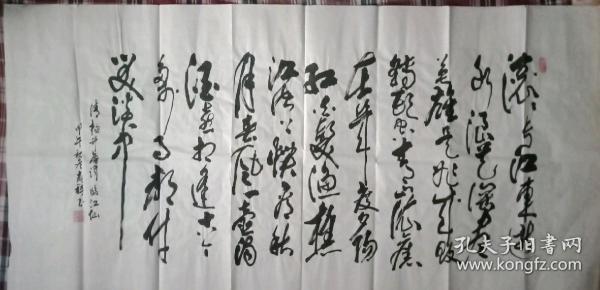 滚滚长江东逝
水浪花淘尽
英雄是非成败
转头空青山依旧
在几度夕阳
红白发渔樵
江渚上惯看秋
月春风一壶浊
酒喜相逢古今
多少事都付
笑谈中
临江仙
甲午
孔夫子旧书网
www.kongfz.com